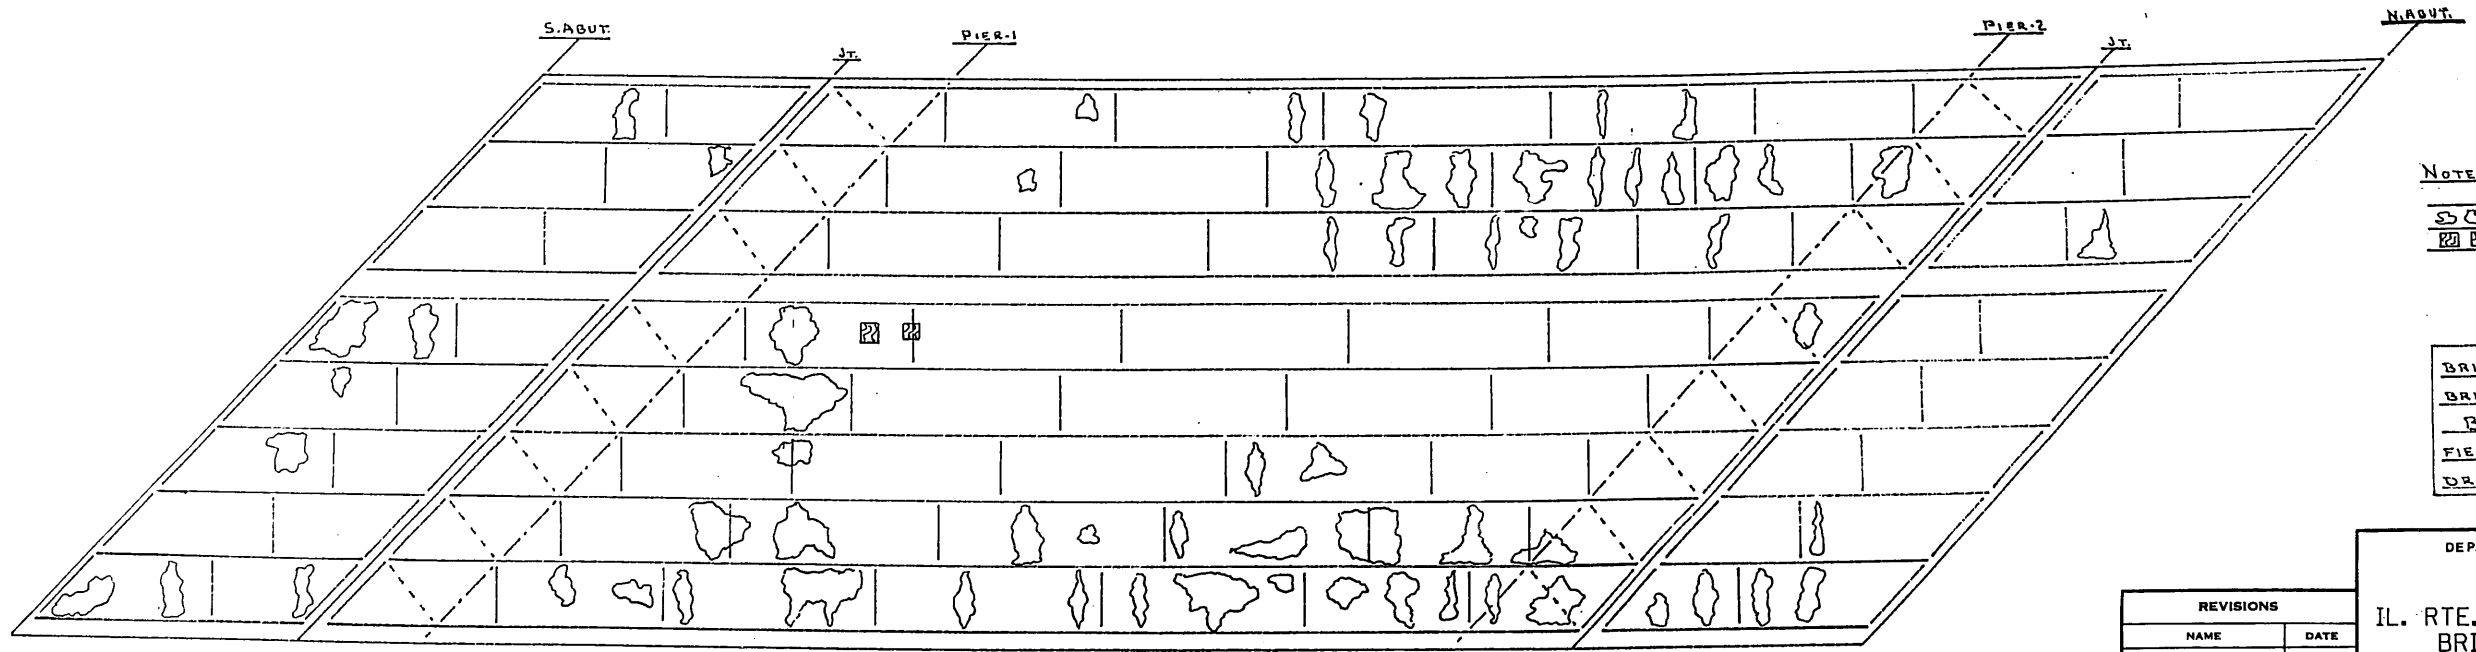 S. ABUT.
JT.
PIER-1
PIER-2
JT.
N. ABUT.
NOTE
BRI
BRI
B
FIE
DR
DEP
REVISIONS
NAME DATE
IL. RTE.
BRI